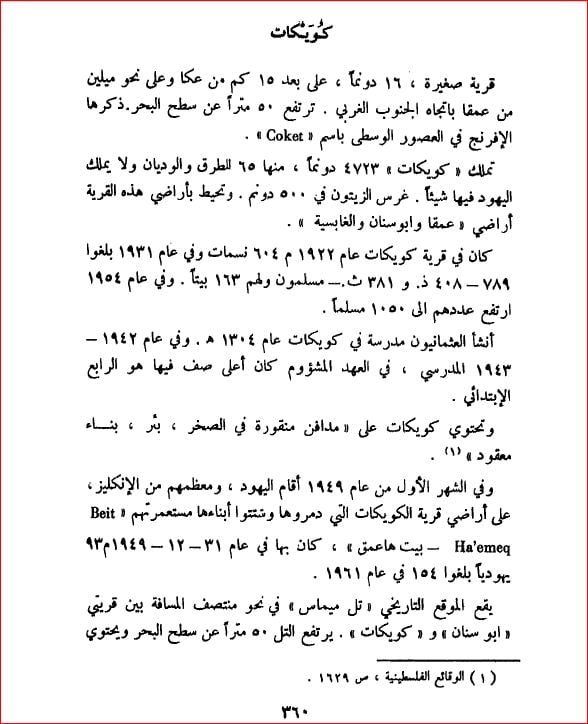 كُوَيْكات
قرية صغيرة ، ١٦ دونماً ، على بعد ١٥ كم من عكا وعلى نحو ميلين
من عمقا باتجاه الجنوب الغربي . ترتفع ٥٠ متراً عن سطح البحر.ذكرها
الإفرنج في العصور الوسطى باسم « Coket » .
تملك « كويكات » ٤٧٢٣ دونماً ، منها ٦٥ للطرق والوديان ولا يملك
اليهود فيها شيئاً . غرس الزيتون في ٥٠٠ دونم . وتحيط بأراضي هذه القرية
أراضي « عمقا وابوسنان والغابسية » .
كان في قرية كويكات عام ١٩٢٢ م ٦٠٤ نسمات وفي عام ١٩٣١ بلغوا
٧٨٩ – ٤٠٨ ذ. و ٣٨١ ث.– مسلمون ولهم ١٦٣ بيتاً . وفي عام ١٩٥٤
ارتفع عددهم الى ١٠٥٠ مسلماً .
أنشأ العثمانيون مدرسة في كويكات عام ١٣٠٤ ه . وفي عام ١٩٤٢ –
١٩٤٣ المدرسي ، في العهد المشؤوم كان أعلى صف فيها هو الرابع
الإبتدائي .
وتحتوي كويكات على « مدافن منقورة في الصخر ، بئر ، بنـــاء
معقود » (١) .
وفي الشهر الأول من عام ١٩٤٩ أقام اليهود ، ومعظمهم من الإنكليز،
على أراضي قرية الكويكات التي دمروها وشتتوا أبناءها مستعمرتهم « Beit
Ha'emeq – بيت هاعمق » ، كان بها في عام ٣١ – ١٢ – ١٩٤٩م ٩٣
يهودياً بلغوا ١٥٤ في عام ١٩٦١ .
يقع الموقع التاريخي « تل ميماس » في نحو منتصف المسافة بين قريتي
« ابو سنان » و « كويكات » . يرتفع التل ٥٠ متراً عن سطح البحر ويحتوي
(١) الوقائع الفلسطينية ، ص ١٦٢٩ .
٣٦٠